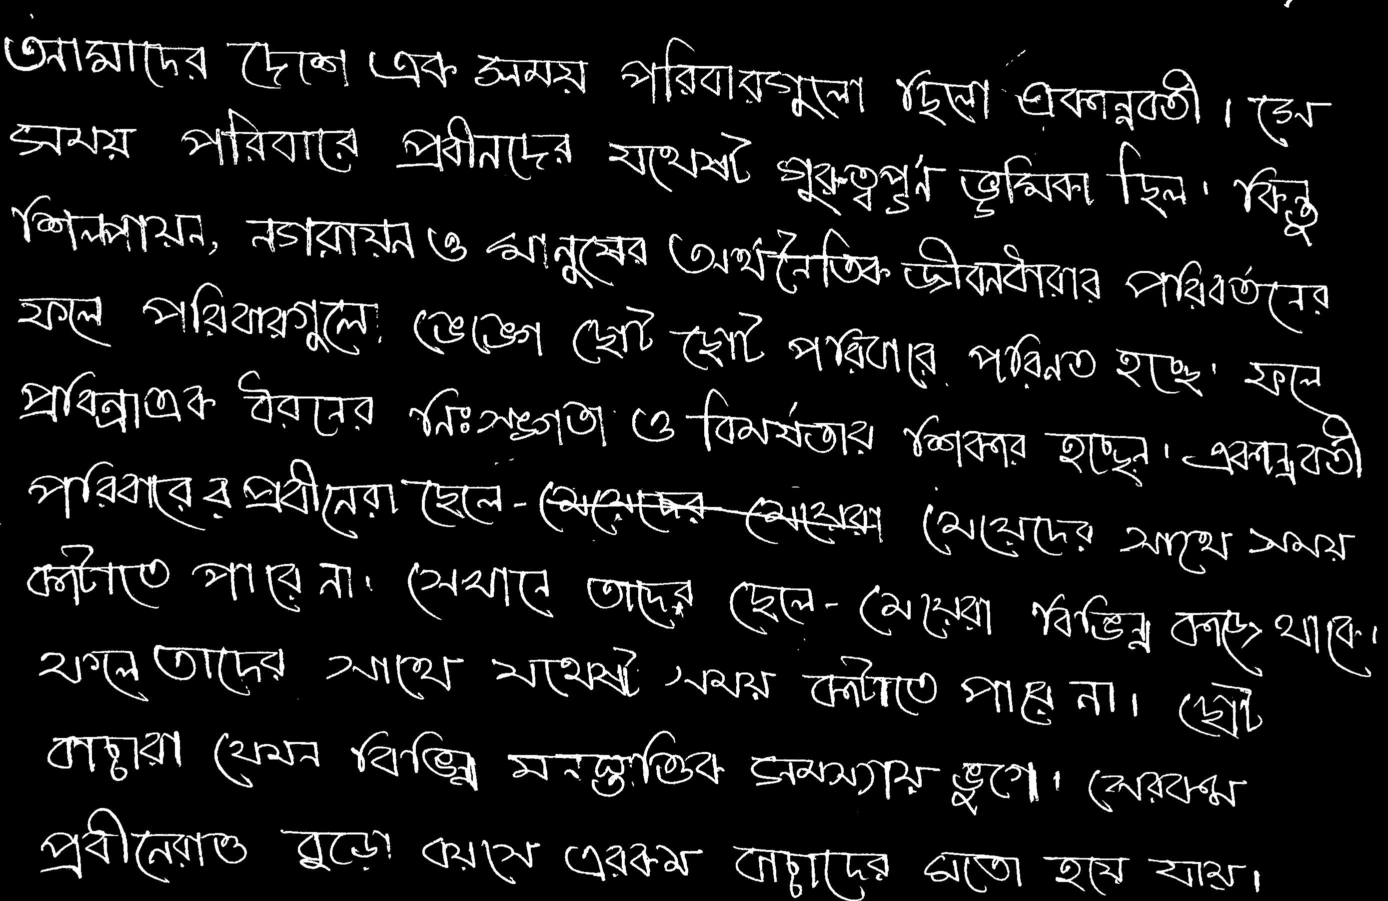 আমাদের দেশে এক সময় পরিবারগুলো ছিলো একান্নবর্তী । সে
সময় পরিবারে প্রবীনদের যথেষ্ট গুরুত্বপূর্ন ভূমিকা ছিল। কিন্তু
শিল্পায়ন, নগরায়ন ও মানুষের অর্থনৈতিক জীবনধারার পরিবর্তনের
ফলে পরিবারগুলো ভেঙ্গে ছোট ছোট পরিবারে পরিনত হচ্ছে। ফলে
প্রবিন্রা এক ধরনের নিঃসঙ্গতা ও বিমর্ষতার শিকার হচ্ছেন। একান্নবর্তী
পরিবারের প্রবীনেরা ছেলে - মেয়েদের মেয়েরা মেয়েদের সাথে সময়
কাটাতে পারে না। সেখানে তাদের ছেলে - মেয়েরা বিভিন্ন কাজে থাকে।
ফলে তাদের সাথে যথেষ্ট সময় কাটাতে পারে না। ছোট
বাচ্চারা যেমন বিভিন্ন মনস্তাত্তিক সমস্যায় ভুগে। সেরকম
প্রবীনেরাও বুড়ো বয়সে এরকম বাচ্চাদের মতো হয়ে যায়।